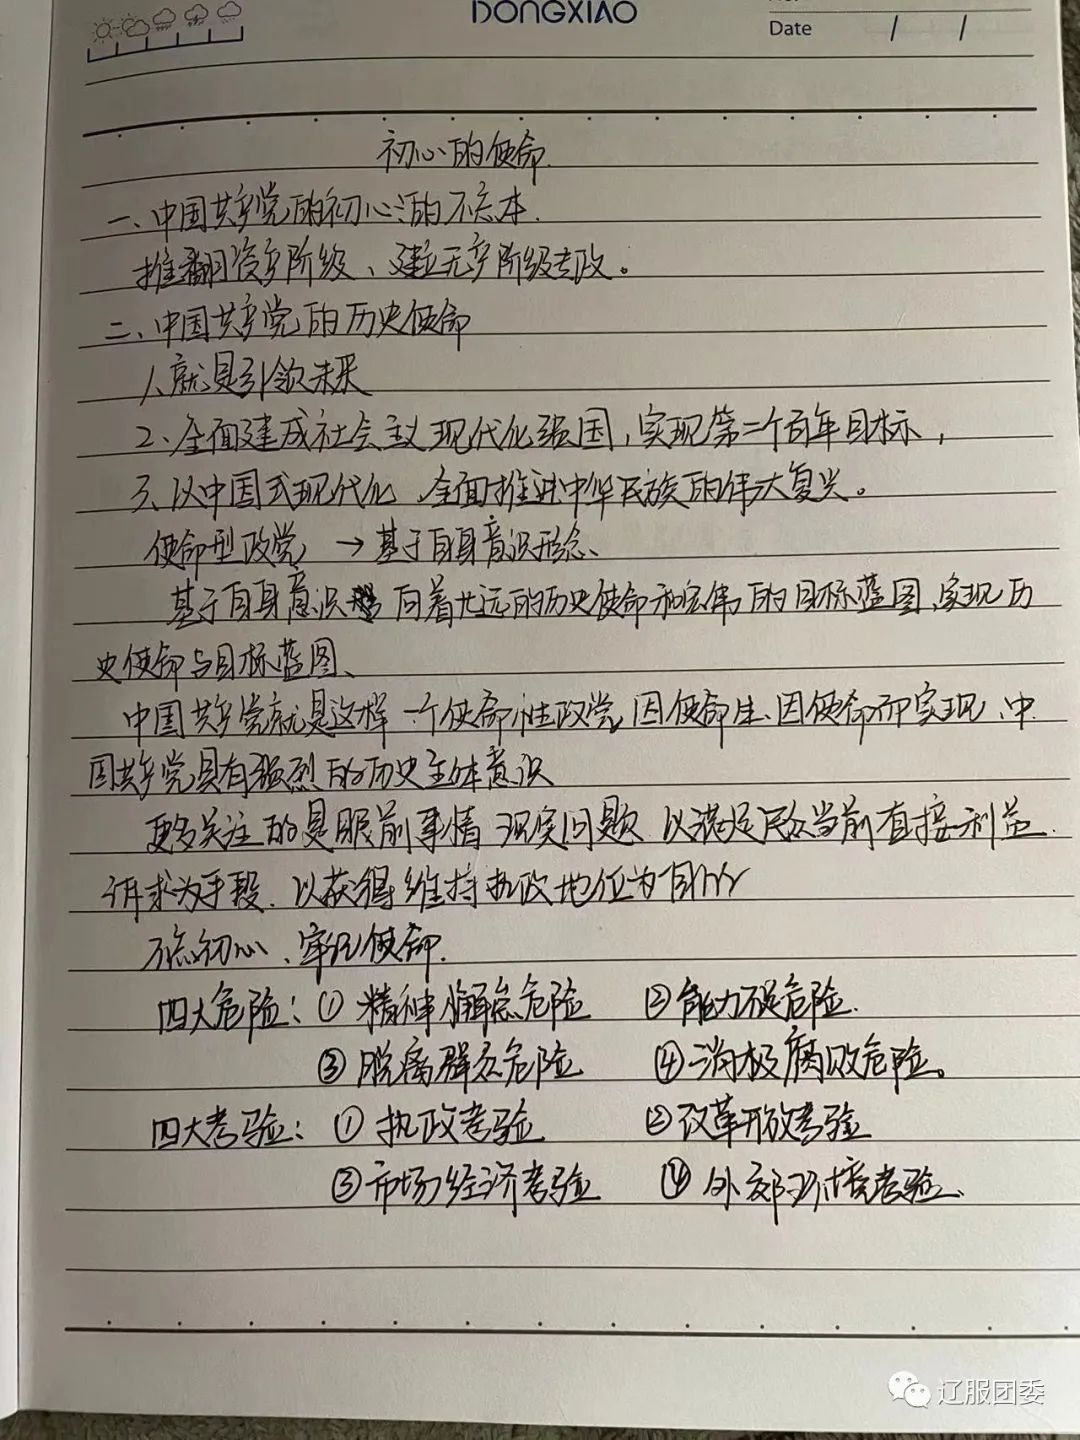 DONGXIAO
Date / /
初心的使命.
一、中国共产党的初心的不忘本.
推翻资产阶级、建立无产阶级专政。
二、中国共产党的历史使命
1、就是引领未来
2、全面建成社会主义现代化强国,实现第二个百年目标,
3、以中国式现代化 全面推进中华民族的伟大复兴。
使命型政党 → 基于自身意识形态、
基于自身意识 向着长远的历史使命和宏伟的目标蓝图、实现历
史使命与目标蓝图、
中国共产党就是这样一个使命性政党,因使命生、因使命而实现、中
国共产党具有强烈的历史主体意识
更多关注的是眼前事情 现实问题 以满足民众当前直接利益
诉求为手段、以获得维持执政地位为目的
不忘初心、牢记使命.
四大危险:① 精神懈怠危险 ② 能力不足危险.
③ 脱离群众危险 ④ 消极腐败危险。
四大考验:① 执政考验 ② 改革开放考验
③ 市场经济考验 ④ 外部环境考验.
辽服团委